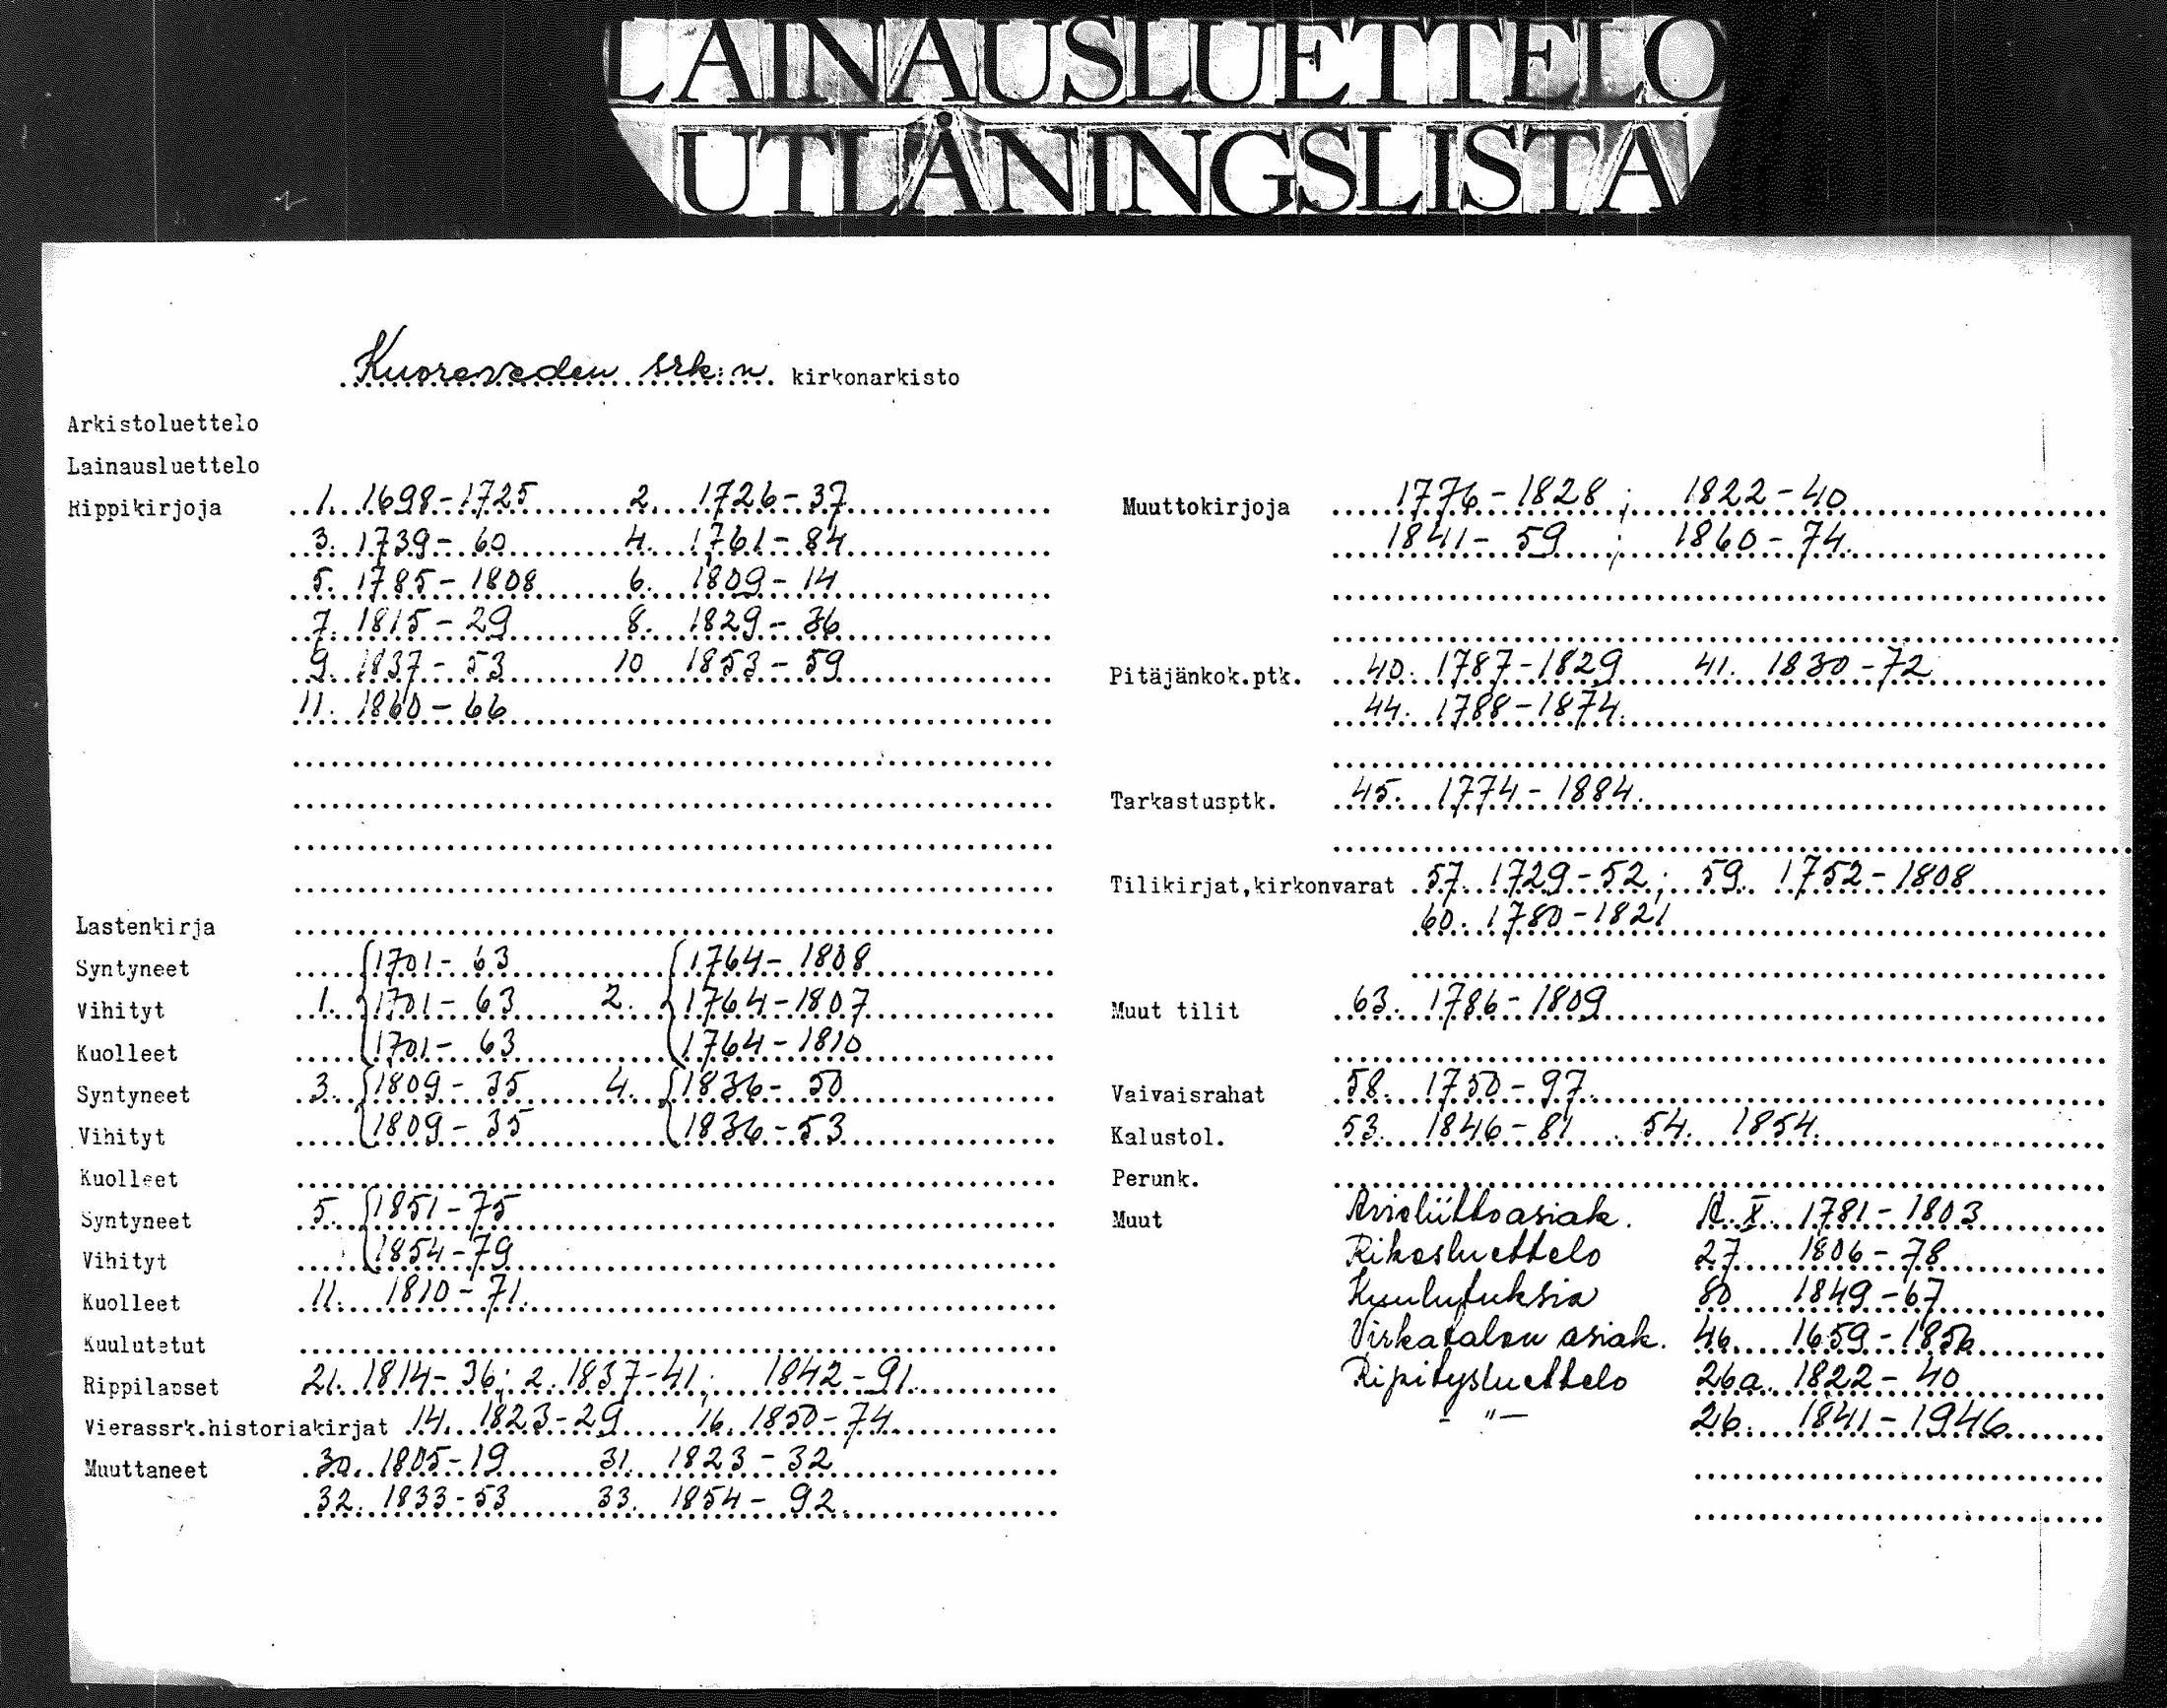 LAINAUSLUETTELO
UTLÅNINGSLISTA
Kuoreveden srk:n kirkonarkisto
Arkistoluettelo
Lainausluettelo
Rippikirjoja 1. 1698-1725 2. 1726-37
3. 1739-60 4. 1761-84
5. 1785-1808 6. 1809-14
7. 1815-29 8. 1829-36
9. 1837-53 10 1853-59
11. 1860-66
Lastenkirja
Syntyneet 1701-63 1764-1808
Vihityt 1. 1701-63 2. 1764-1807
Kuolleet 1701-63 1764-1810
Syntyneet 3. 1809-35 4. 1836-50
Vihityt 1809-35 1836-53
Kuolleet
Syntyneet 5. 1851-75
Vihityt 1854-79
Kuolleet 11. 1810-71.
Kuulutetut
Rippilapset 21. 1814-36; 2. 1837-41; 1842-91.
Vierassrk.historiakirjat 14. 1823-29 16. 1850-74.
Muuttaneet 30. 1805-19 31. 1823-32
32. 1833-53 33. 1854-92.
Muuttokirjoja 1776-1828; 1822-40
1841-59; 1860-74.
Pitäjänkok.ptk. 40. 1787-1829 41. 1830-72
44. 1788-1874.
Tarkastusptk. 45. 1774-1884.
Tilikirjat,kirkonvarat 57. 1729-52; 59. 1752-1808
60. 1780-1821
Muut tilit 63. 1786-1809
Vaivaisrahat 58. 1750-97.
Kalustol. 53. 1846-81 54. 1854.
Perunk.
Muut Avioliittoasiak. A.X. 1781-1803
Rikosluettelo 27 1806-78
Kuulutuksia 80 1849-67
Virkatalon asiak. 46. 1659-1856
Ripitysluettelo 26a. 1822-40
- " - 26. 1841-1946